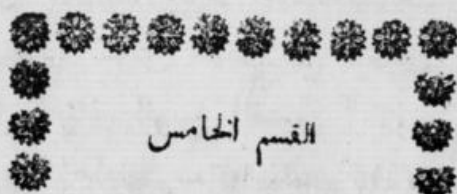 القسم الخامس